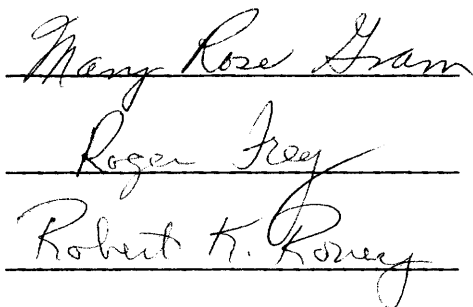 Mary Rose Gram
Roger Frey
Robert K. Roney